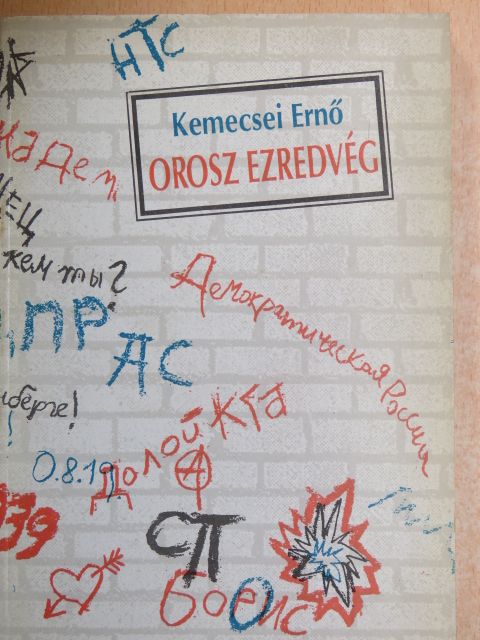 НТС
Kemecsei Ernő
OROSZ EZREDVÉG
на Дем
НЕЦ
кем ты?
Демократическая Россия
ПР
ДС
берге!
Долой КГБ
О.8.19
А
939
СП
Борис